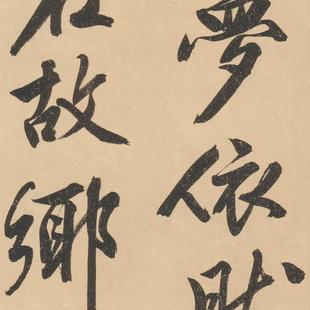 夢依然
在故鄉